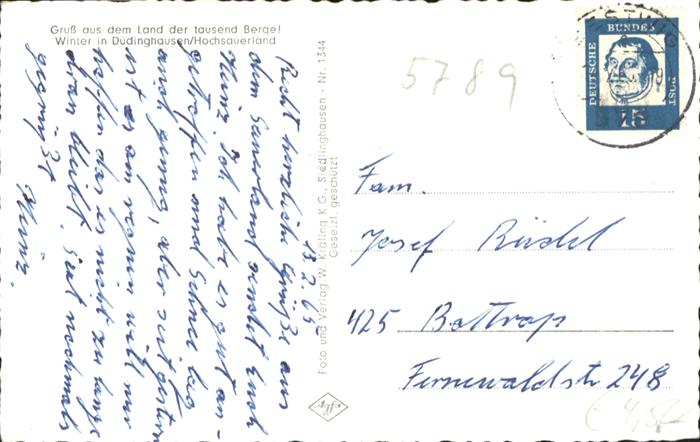 Gruß aus dem Land der tausend Berge!
Winter in Düdinghausen/Hochsauerland
13.2.65
Recht herzliche Grüße aus
dem Sauerland sendet Euch
Heinz. Ich habe es gut an-
getroffen und Schnee lag
auch genug, aber seit gestern
ist es am regnen. Will nur
hoffen das es nicht zu lange
dran bleibt. Seit nochmals
gegrüßt
Heinz.
Foto und Verlag W. Kräling K G., Siedlinghausen - Nr. 1344
Gesetzl. geschützt
5789
DEUTSCHE BUNDESPOST
15
Fam.
Josef
425 Bottrop
Fernewaldstr 248